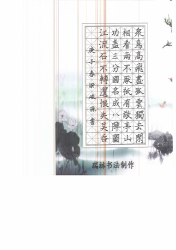 眾鳥高飛盡孤雲獨去閑
相看兩不厭祇有敬亭山
功蓋三分國名成八陣圖
江流石不轉遺恨失吞吳
书法制作